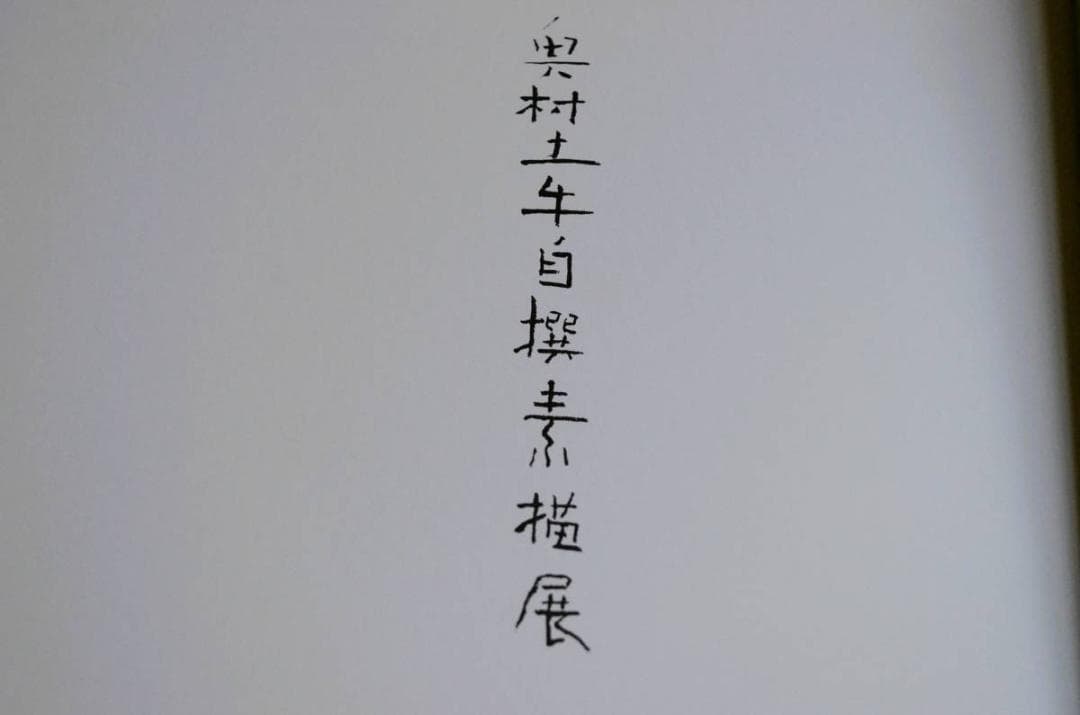 奥村土牛自撰素描展